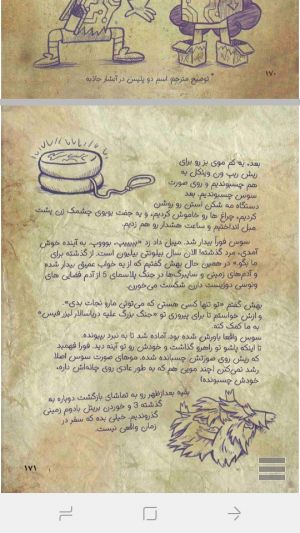 * توضیح مترجم: اسم دو پلیس در آبشار جاذبه
۱۷۰
بعد، یه کم موی بز رو برای
ریش ریپ ون وینکل به
هم چسبوندیم و روی صورت
سوس چسبوندیم. بعد
دستگاه مه شکن استن رو روشن
کردیم، چراغ ها رو خاموش کردیم، و یه جفت بوبوی چشمک زن پشت
مبل انداختیم و ساعت هشدار رو هم زدیم.
سوس فوراً بیدار شد. میبل داد زد «بیییپ، بوووپ، به آینده خوش
آمدی، مرد گذشته! الان سال بیلیونتی بیلیون است. از گذشته برای
ما بگو.» در همین حال بهش گفتیم که از یه خواب عمیق بیدار شده
و آدم‌های زمینی و سایبرگ‌ها در جنگ پلاسمای ۵ از آدم فضایی های
ونوسی دوزیست دارن شکست می‌خورن.
بهش گفتیم «تو تنها کسی هستی که می‌تونی مارو نجات بدی».
و ازش خواستم تا برای پیروزی تو «جنگ بزرگ علیه دریاسالار لیزر فیس»
به ما کمک کنه.
سوس واقعاً باورش شده بود. آماده شد تا به نبرد بپیونده.
تا اینکه پاشو تو راهرو گذاشت و خودش رو تو آینه دید. فوراً فهمید
که ریش روی صورتش چسبانده شده. موهای صورت سوس اصلا
رشد نمی‌کنن (چند مویی هم که به طور عادی روی چانه‌اش داره،
خودش چسبونده!)
بقیه بعدازظهر رو به تماشای بازگشت دوباره به
گذشته ۳ و خوردن بریتل بادوم زمینی
گذروندیم. خیلی بده که سفر در
زمان واقعی نیست.
۱۷۱